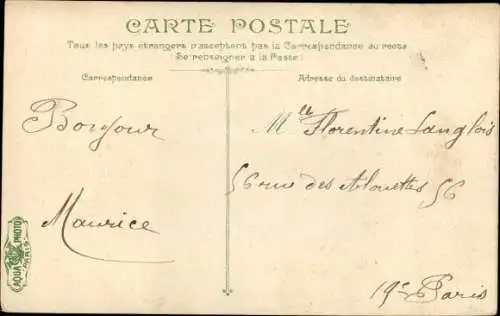 CARTE POSTALE
Tous les pays étrangers n'acceptent pas la Correspondance au recto
(Se renseigner à la Poste)
Correspondance
Adresse du destinataire
Bonjour
Maurice
Mlle Florentine Langlois
56 rue des Alouettes 56
19e Paris
AQUA PHOTO
PARIS